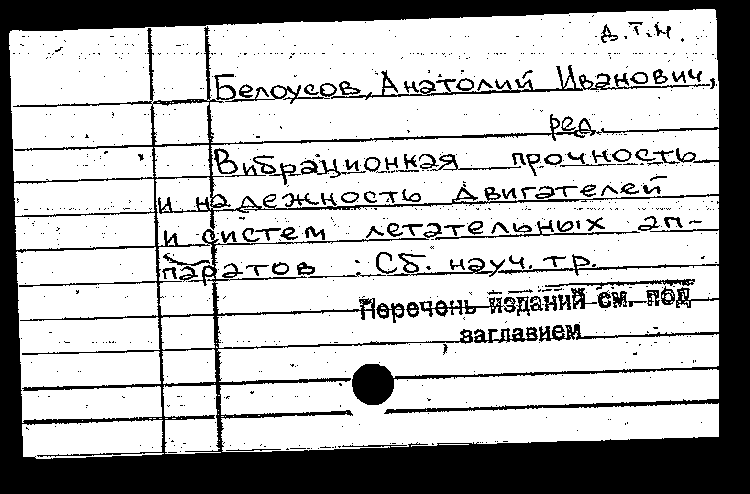 д.т.н.
Белоусов, Анатолий Иванович,
ред.
Вибрационная прочность
и надежность двигателей
и систем летательных ап-
паратов : Сб. науч. тр.
Перечень изданий см. под
заглавием